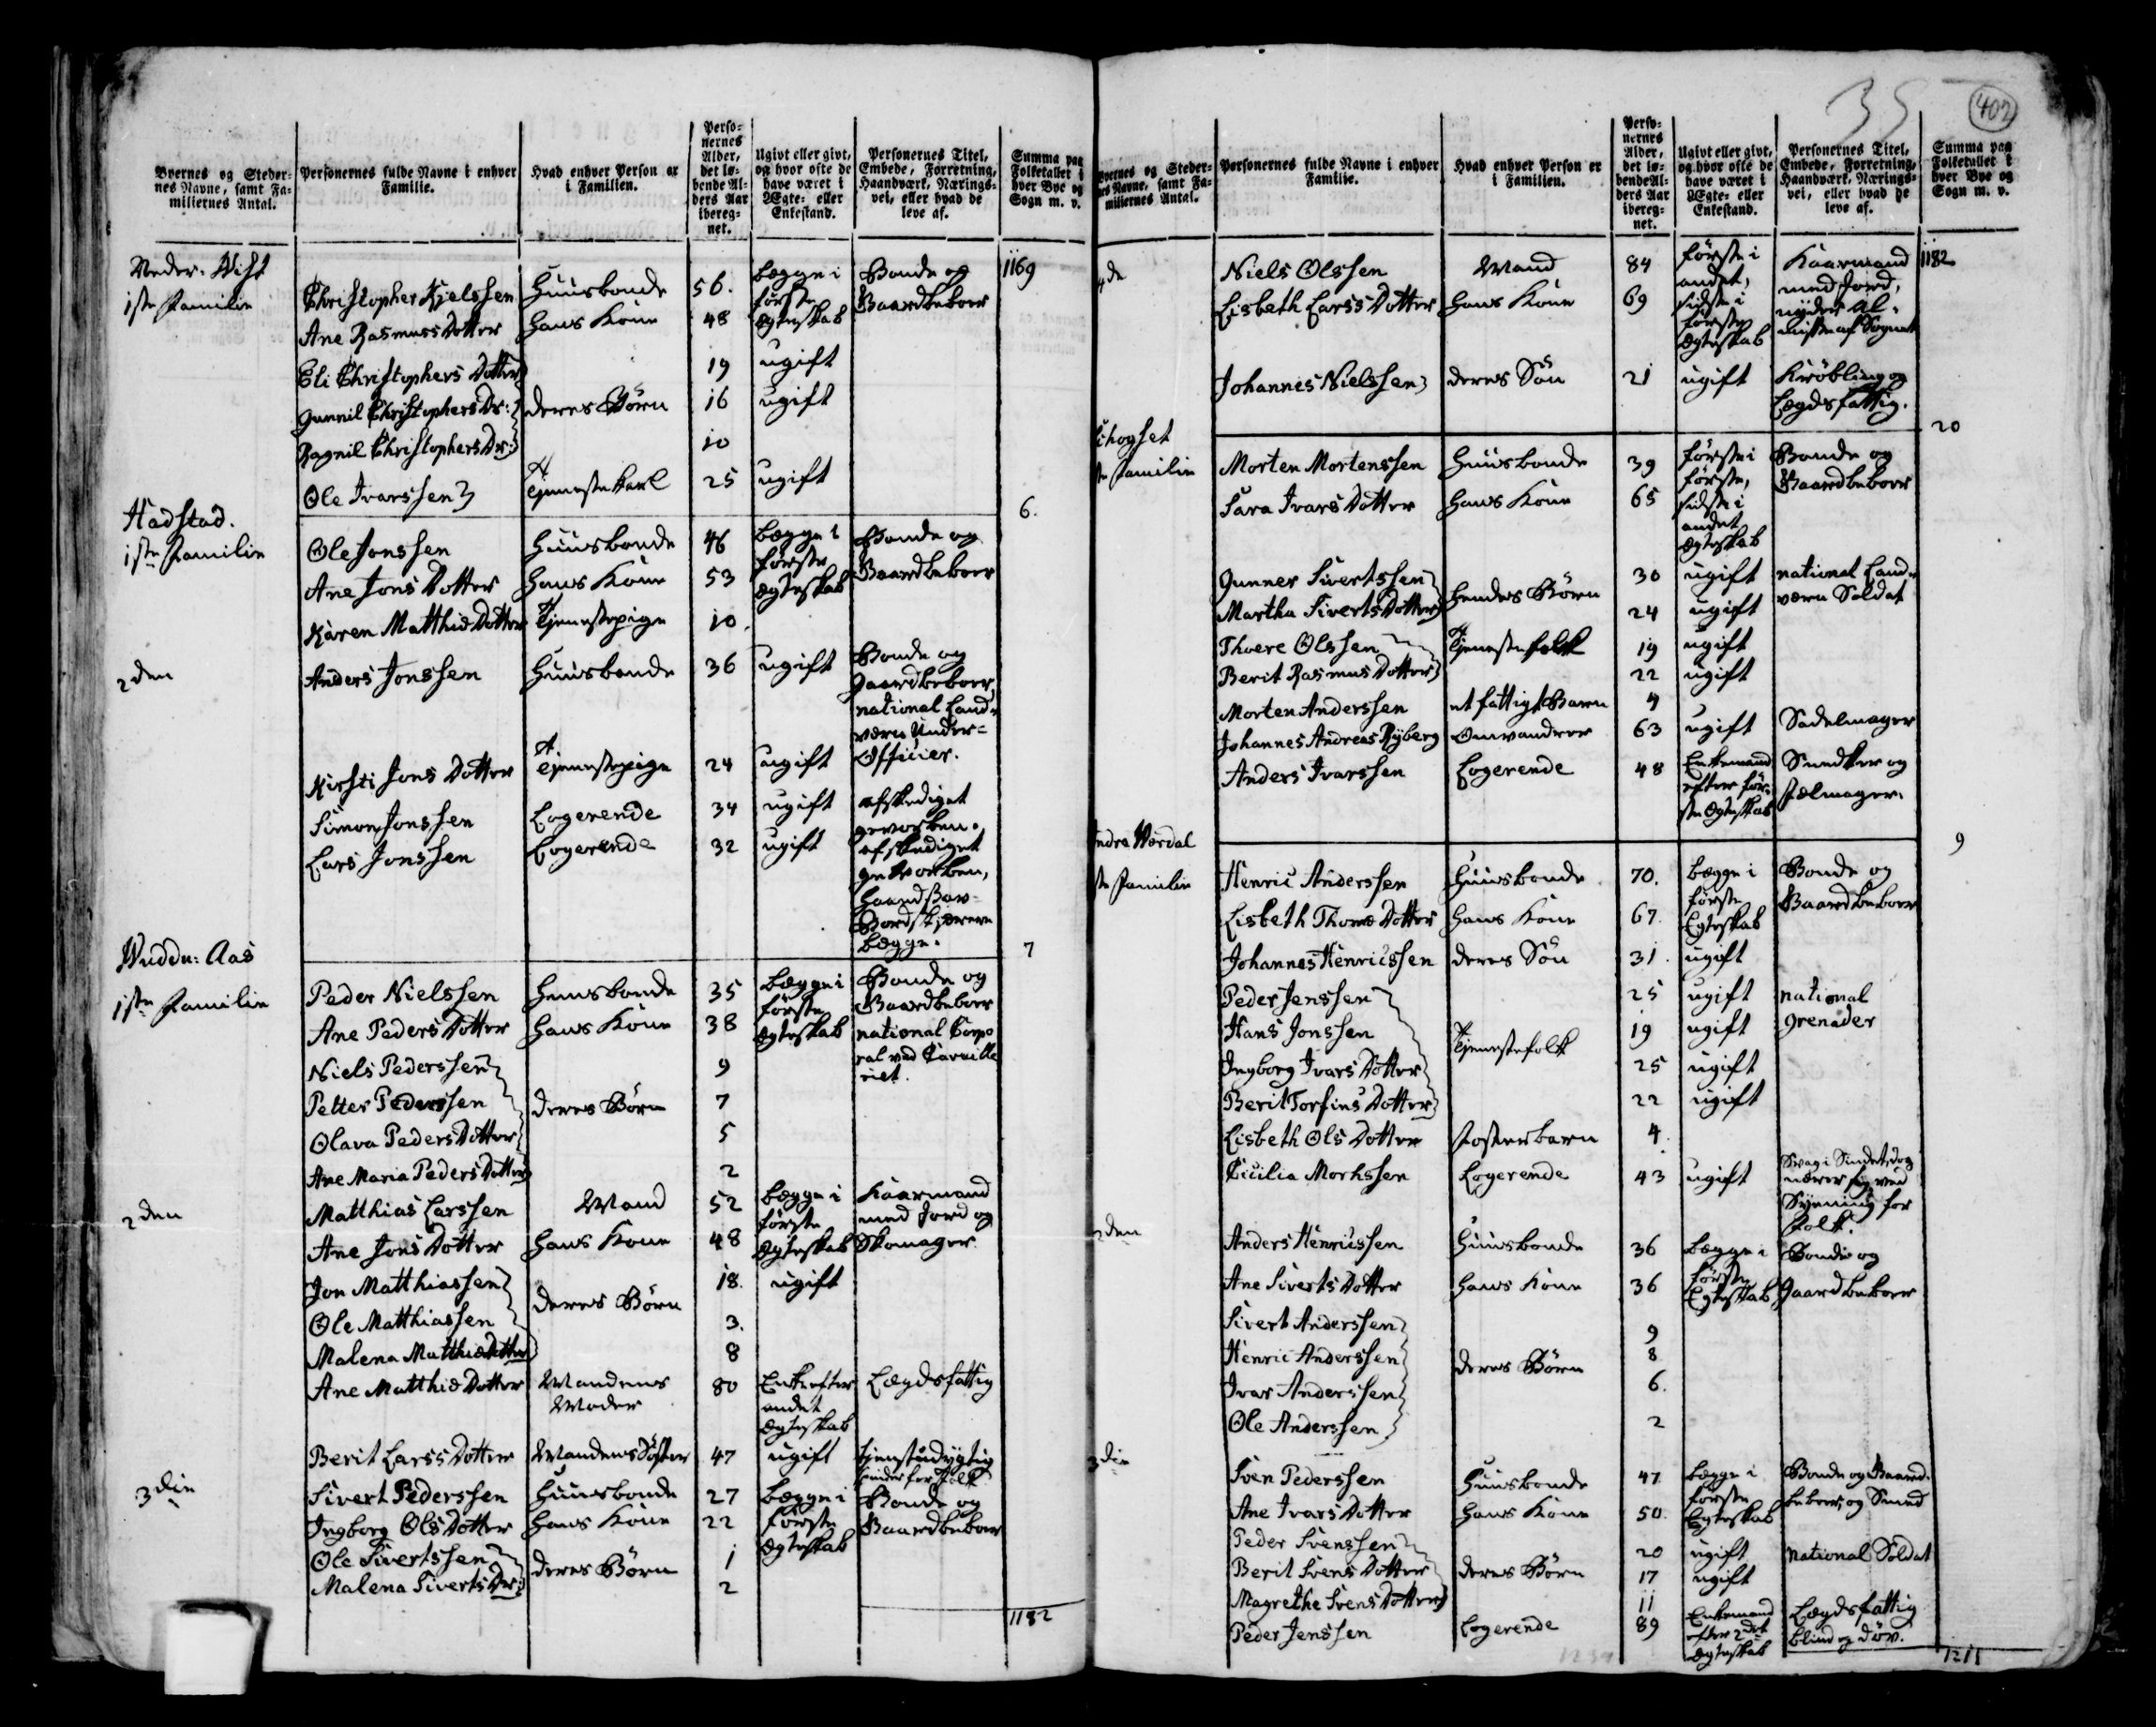 Byernes og Steder-
nes Navne, samt Fa-
miliernes Antal.
Personernes fulde Navne i enhver
Familie.
Hvad enhver Person er
i Familien.
Perso-
nernes
Alder,
det lø-
bende Al-
ders Aar
ibereg-
net.
Ugivt eller givt,
og hvor ofte de
have været i
Ægte- eller
Enkestand.
Personernes Titel,
Embede, Forretning,
Haandværk, Nærings-
vei, eller hvad de
leve af.
Summa paa
Folketallet i
hver Bye og
Sogn m. v.
1169
1ste Familie
Christopher Kjelssen Huusbonde 56. begge i første Ægteskab Bonde og Gaardbeboer
Ane Rasmuss Dotter hans Kone 48
Eli Christophers Dotter 19 ugift
Gunnil Christophers Dr: deres Børn 16 ugift
Ragnil Christophers Dr: 10
Ole Ivarssen Tjenestekarl 25 ugift
6.
Hadstad.
1ste Familie
Ole Jonssen Huusbonde 46 begge i første Ægteskab Bonde og Gaardbeboer
Ane Jons Dotter hans Kone 53
Karen Matthiæ Dotter Tjenestepige 10.
2den
Anders Jonssen Huusbonde 36 ugift Bonde og
Gaardbeboer
national Land-
værn Under-
Officier.
Kirsti Jons Dotter Tjenestepige 24 ugift
Simon Jonssen Logerende 34 ugift afskediget
gevorben.
Lars Jonssen Logerende 32 ugift afskediget
gevorben,
begge.
7
Aas
1ste Familie
Peder Nielssen Huusbonde 35 begge i første Ægteskab Bonde og Gaardbeboer
Ane Peders Dotter hans Kone 38 national Corpo
ral ved Cavalle
riet.
Niels Pederssen 9
Petter Pederssen deres Børn 7
Olava Peders Dotter 5
Ane Maria Peders Dotter 2
2den
Matthias Larssen Mand 52 begge i første Ægteskab Kaarmand
med Jord og
Skomager
Ane Jons Dotter hans Kone 48
Jon Matthiassen deres Børn 18. ugift
Ole Matthiassen 3.
Malena Matthiæ Dotter 8
Ane Matthiæ Dotter Mandens
Moder 80 Enke efter
andet
Ægteskab Lægdsfattig
Berit Larss Dotter Mandens Søster 47 ugift tjenestudygtig
spinder for Folk
3die
Sivert Pederssen Huusbonde 27 begge i første Ægteskab Bonde og Gaardbeboer
Ingborg Ols Dotter hans Kone 22
Ole Sivertssen deres Børn 1
Malena Siverts Dr: 2
1182
35
402
Byernes og Steder-
nes Navne, samt Fa-
miliernes Antal.
Personernes fulde Navne i enhver
Familie.
Hvad enhver Person er
i Familien.
Perso-
nernes
Alder,
det lø-
bende Al-
ders Aar
ibereg-
net.
Ugivt eller givt,
og hvor ofte de
have været i
Ægte- eller
Enkestand.
Personernes Titel,
Embede, Forretning,
Haandværk, Nærings-
vei, eller hvad de
leve af.
Summa paa
Folketallet i
hver Bye og
Sogn m. v.
1182
4de
Niels Olssen Mand 84 første i
andet,
sidste i
første
Ægteskab Kaarmand
med Jord,
nyder Al-
misse af Sognet
Lisbeth Larss Dotter hans Kone 69
Johannes Nielssen deres Søn 21 ugift Krøbling og
Lægdsfattig.
20
Familie
Morten Mortenssen Huusbonde 39 første i
første,
sidste i
andet
Ægteskab Bonde og
Gaardbeboer
Sara Ivars Dotter hans Kone 65
Gunner Sivertssen hendes Børn 30 ugift national Land-
værn Soldat
Martha Siverts Dotter 24 ugift
Thore Olssen Tjenestefolk 19 ugift
Berit Rasmus Dotter 22 ugift
Morten Anderssen et fattigt Barn 4
Johannes Andreas Ryberg Omvandrer 63 ugift Sadelmager
Anders Ivarssen Logerende 48 Enkemand
efter før-
ste Ægteskab Snedker og
9
Indre Værdal
Familie
Henric Anderssen Huusbonde 70. begge i
første
Egteskab Bonde og
Gaardbeboer
Lisbeth Thomæ Dotter hans Kone 67.
Johannes Henricssen deres Søn 31. ugift
Peder Jenssen 25 ugift national
Grenader
Hans Jonssen Tjenestefolk 19 ugift
Ingborg Ivars Dotter 25 ugift
Berit Torfins Dotter 22 ugift
Lisbeth Ols Dotter Fosterbarn 4.
Cicilia Morhssen Logerende 43 ugift Svag i Sindet og
nærer sig ved
Syening for
Folk.
2den
Anders Henricssen Huusbonde 36 begge i
første
Egteskab Bonde og
Gaardbeboer
Ane Siverts Dotter hans Kone 36
Sivert Anderssen 9
Henric Anderssen deres Børn 8
Ivar Anderssen 6.
Ole Anderssen 2
3die
Sven Pederssen Huusbonde 47 begge i
første
Egteskab Bonde og Gaard-
beboer, og Smed
Ane Ivars Dotter hans Kone 50.
Peder Svenssen 20 ugift National Soldat
Berit Svens Dotter deres Børn 17 ugift
Magrethe Svens Dotter 11
Peder Jenssen Logerende 89 Enkemand
efter 2det
Ægteskab Lægdsfattig
blind og døv.
1211